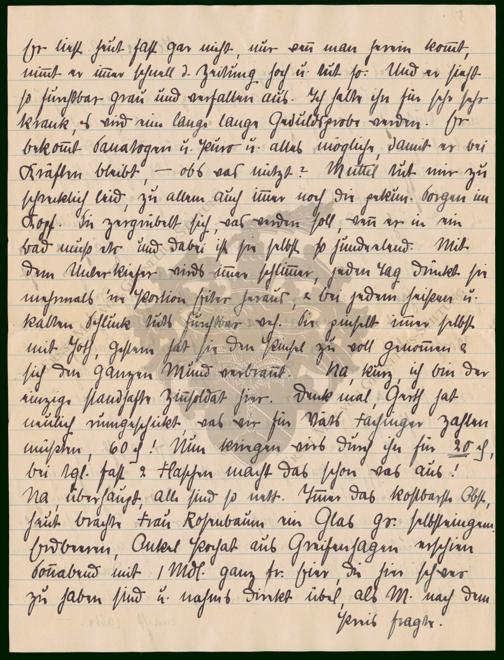 Er liest heut fast gar nicht, nur wenn man herein kommt,
nimmt er immer schnell d. Zeitung hoch u. tut so. Und er sieht
so furchtbar grau und verfallen aus. Ich halte ihn für sehr sehr
krank, es wird eine lange lange Geduldsprobe werden. Er
bekommt Sanatogen u. Puro u. alles mögliche, damit er bei
Kräften bleibt, – obs was nützt? Muttel tut mir zu
schrecklich leid, zu allem auch immer noch die pekun. Sorgen im
Kopf. Sie zergrübelt sich, was werden soll, wenn er in ein
Bad muss etc. und dabei ist sie selbst so hundeelend. Mit
dem Unterkiefer wirds immer schlimmer, jeden Tag drückt sie
mehrmals 'ne Portion Eiter heraus, & bei jedem heissen u.
kalten Schluck tuts furchtbar weh. Sie pinselt immer selbst
mit Jod, gestern hat sie den Pinsel zu voll genommen &
sich den ganzen Mund verbrannt. Na, kurz ich bin der
einzige standhafte Zinsoldat hier. Denk mal, Gerth hat
neulich rumgeschickt was wir für Vatis Fachinger zahlen
müssten, 60 ₰! Nun kriegen wirs durch ihn für 20 ₰,
bei tgl. fast 2 Flaschen macht das schon was aus!
Na überhaupt, alle sind so nett. Immer das kostbarste Obst,
heut brachte Frau Rosenbaum ein Glas gr. selbsteingem.
Erdbeeren, Onkel Pochat aus Greifenhagen erschien
Sonnabend mit 1 Mdl. ganz fr. Eier die hier schwer
zu haben sind u. nahms direkt übel als M. nach dem
Preis fragte.